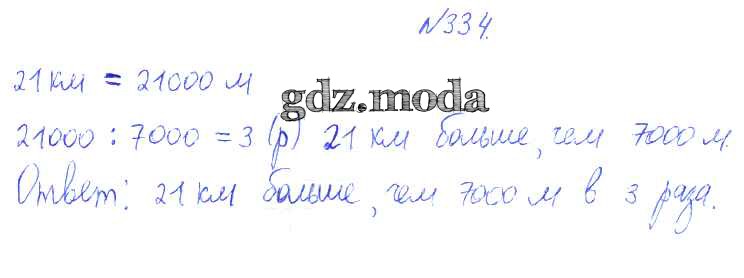 №334.
21 км = 21000 м
gdz.moda
21000 : 7000 = 3 (р) 21 км больше, чем 7000 м.
Ответ: 21 км больше, чем 7000 м в 3 раза.